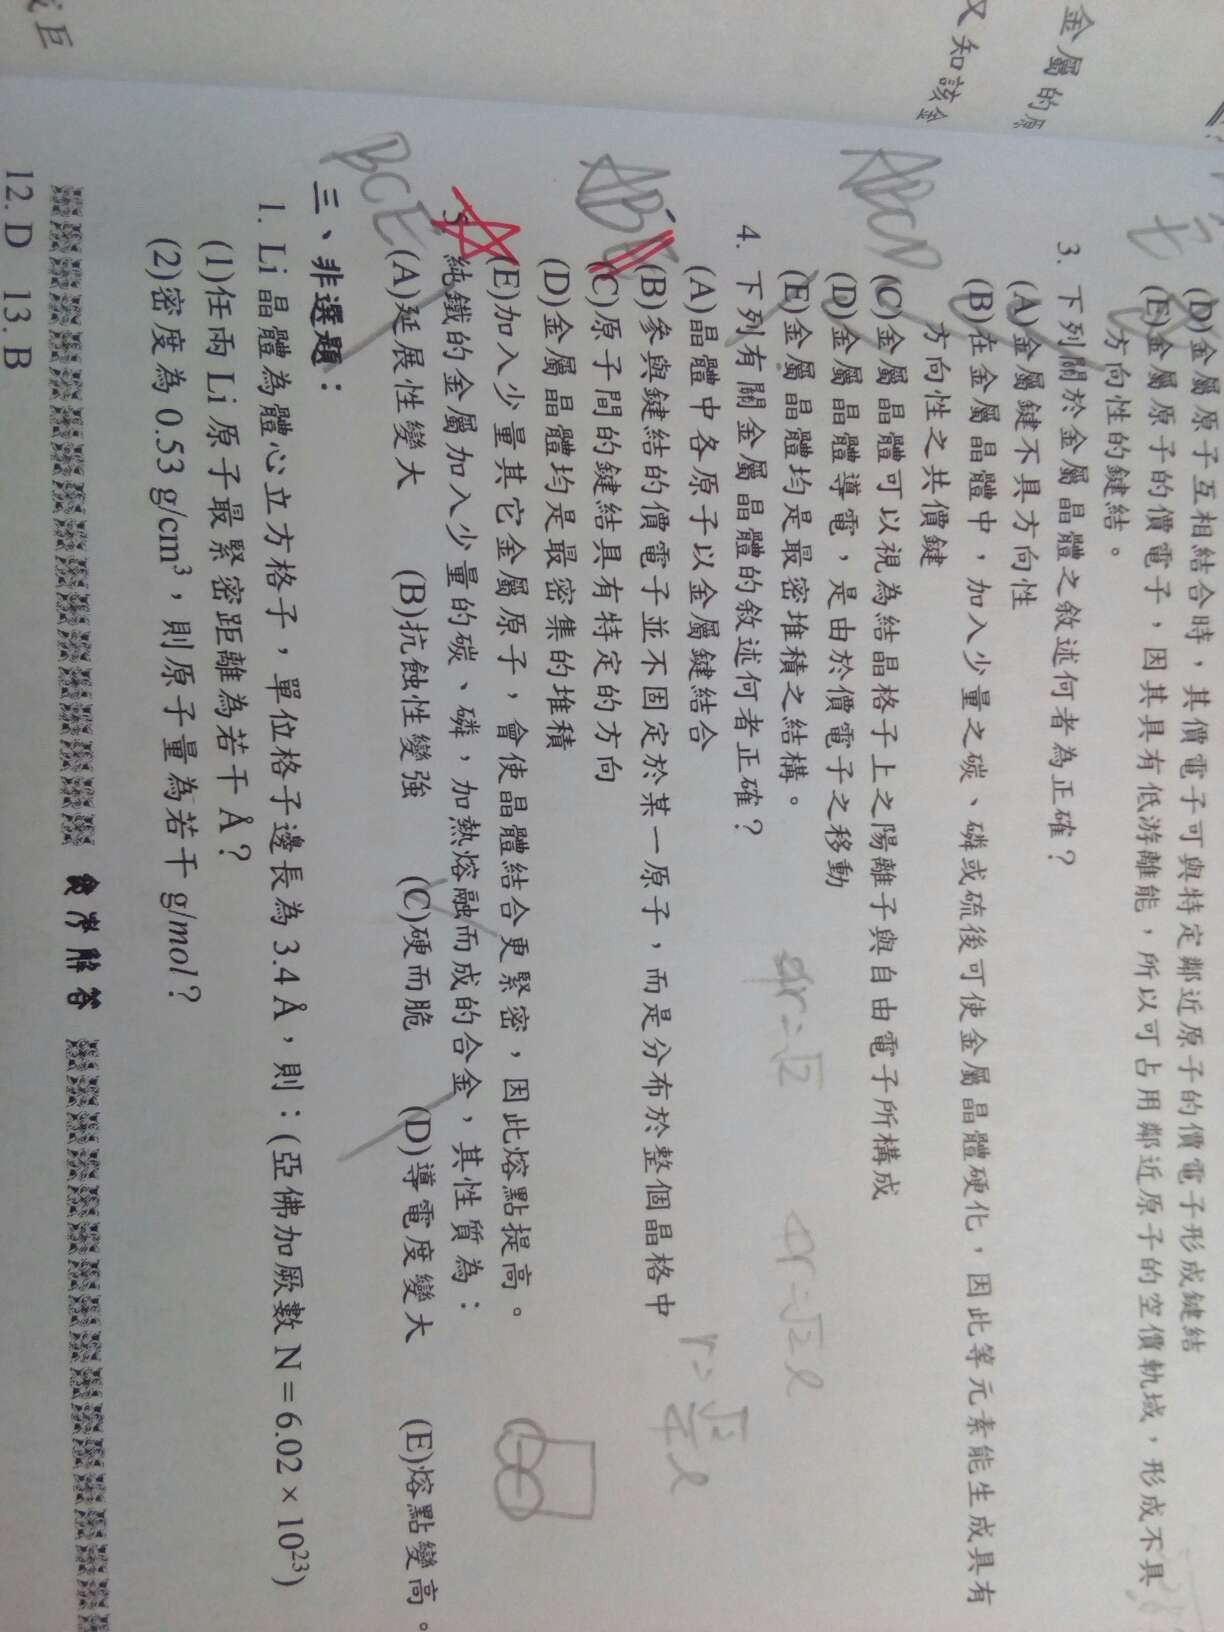 金屬的原
又知該金
(D)金屬原子互相結合時，其價電子可與特定鄰近原子的價電子形成鍵結
(E)金屬原子的價電子，因其具有低游離能，所以可占用鄰近原子的空價軌域，形成不具
方向性的鍵結。
3. 下列關於金屬晶體之敘述何者為正確？
(A)金屬鍵不具方向性
(B)在金屬晶體中，加入少量之碳、磷或硫後可使金屬晶體硬化，因此等元素能生成具有
方向性之共價鍵
(C)金屬晶體可以視為結晶格子上之陽離子與自由電子所構成
(D)金屬晶體導電，是由於價電子之移動
(E)金屬晶體均是最密堆積之結構。
ABCD
4r=√2
4r=√2 l
4. 下列有關金屬晶體的敘述何者正確？
(A)晶體中各原子以金屬鍵結合
(B)參與鍵結的價電子並不固定於某一原子，而是分布於整個晶格中
(C)原子間的鍵結具有特定的方向
(D)金屬晶體均是最密集的堆積
(E)加入少量其它金屬原子，會使晶體結合更緊密，因此熔點提高。
AB
r=√2/4 l
5. 純鐵的金屬加入少量的碳、磷，加熱熔融而成的合金，其性質為：
(A)延展性變大 (B)抗蝕性變強 (C)硬而脆 (D)導電度變大 (E)熔點變高。
BCE
三、非選題：
1. Li 晶體為體心立方格子，單位格子邊長為 3.4 Å，則：(亞佛加厥數 N = 6.02 × 10²³)
(1)任兩 Li 原子最緊密距離為若干 Å？
(2)密度為 0.53 g/cm³，則原子量為若干 g/mol？
參考解答
12. D 13. B